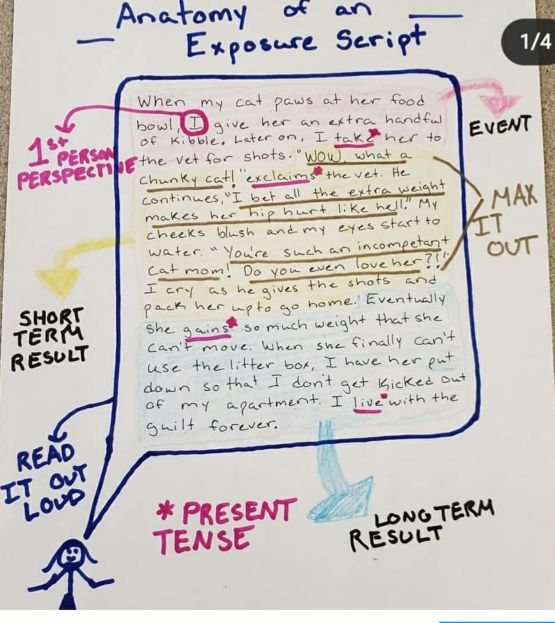 Anatomy of an
Exposure Script
1/4
When my cat paws at her food
bowl, I give her an extra handful
of kibble. Later on, I take* her to
the vet for shots. "WOW, what a
chunky cat!" exclaims* the vet. He
continues, "I bet all the extra weight
makes her hip hurt like hell!" My
cheeks blush and my eyes start to
water. "You're such an incompetant
cat mom! Do you even love her?!!"
I cry as he gives the shots and
pack her up to go home. Eventually
she gains* so much weight that she
can't move. When she finally can't
use the litter box, I have her put
down so that I don't get kicked out
of my apartment. I live* with the
guilt forever.
1st PERSON
PERSPECTIVE
EVENT
MAX
IT
OUT
SHORT
TERM
RESULT
READ
IT OUT
LOUD
* PRESENT
TENSE
LONG TERM
RESULT